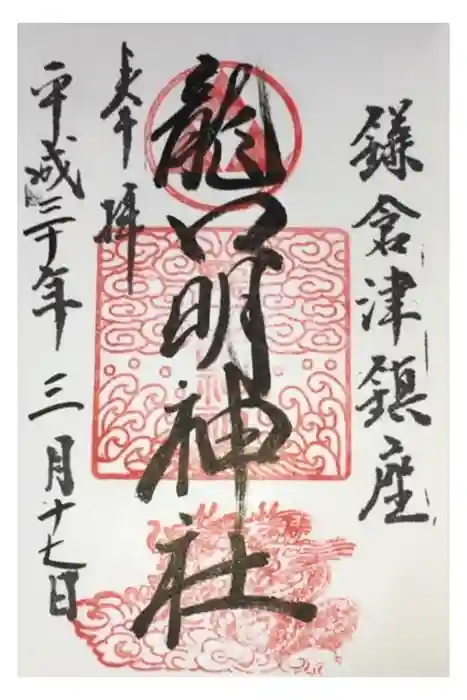 鎌倉津鎮座
龍口明神社
奉拝
平成三十年三月十七日